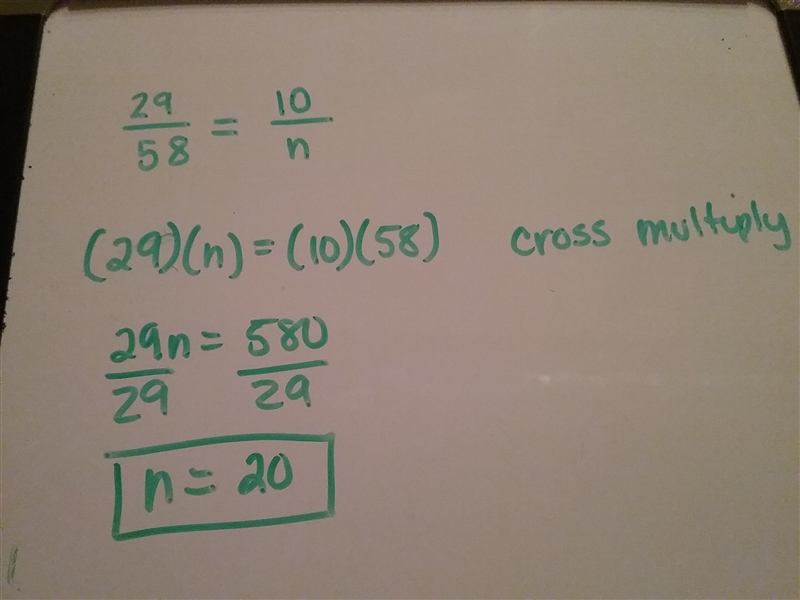 29/58 = 10/n
(29)(n) = (10)(58) cross multiply
29n/29 = 580/29
n = 20